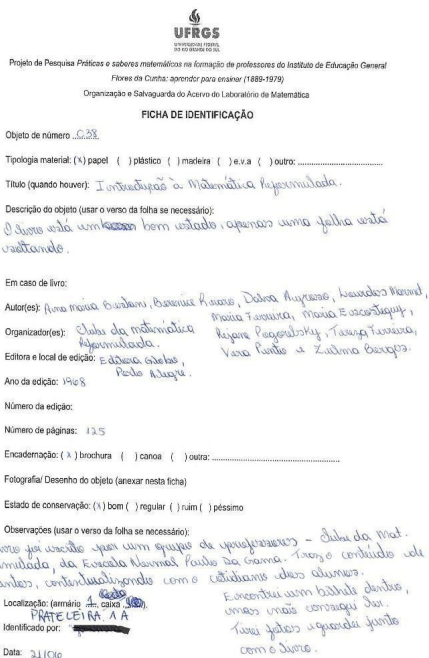 UFRGS
UNIVERSIDADE FEDERAL
DO RIO GRANDE DO SUL
Projeto de Pesquisa Práticas e saberes matemáticos na formação de professores do Instituto de Educação General
Flores da Cunha: aprender para ensinar (1889-1979)
Organização e Salvaguarda do Acervo do Laboratório de Matemática
FICHA DE IDENTIFICAÇÃO
Objeto de número 038
Tipologia material: (x) papel ( ) plástico ( ) madeira ( ) e.v.a ( ) outro: ..............................
Título (quando houver): Introdução à Matemática Reformulada.
Descrição do objeto (usar o verso da folha se necessário):
O livro está em bom estado, apenas uma folha está
soltando.
Em caso de livro:
Autor(es): Anna Maria Bardani, Berenice, Dalva, Lourdes,
Maria Ferreira, Maria,
Rejane, Tereza Ferreira,
Vera Pinto e Zulma Borges.
Organizador(es): Clube da matemática
Reformulada.
Editora e local de edição: Editora Globo,
Porto Alegre.
Ano da edição: 1968
Número da edição:
Número de páginas: 125
Encadernação: (x) brochura ( ) canoa ( ) outra: ..............................
Fotografia/ Desenho do objeto (anexar nesta ficha)
Estado de conservação: (x) bom ( ) regular ( ) ruim ( ) péssimo
Observações (usar o verso da folha se necessário):
foi escrito por um equipe de professores - Clube da Mat.
mulada, da Escola Normal Paulo Da Gama. Traz o conteúdo de
contextualizando com o cotidiano dos alunos.
Encontrei um bilhete dentro,
mas não consegui ler.
Tirei fotos e guardei junto
com o livro.
Localização: (armário 1, caixa
PRATELEIRA 1A
Identificado por:
Data: 21/06